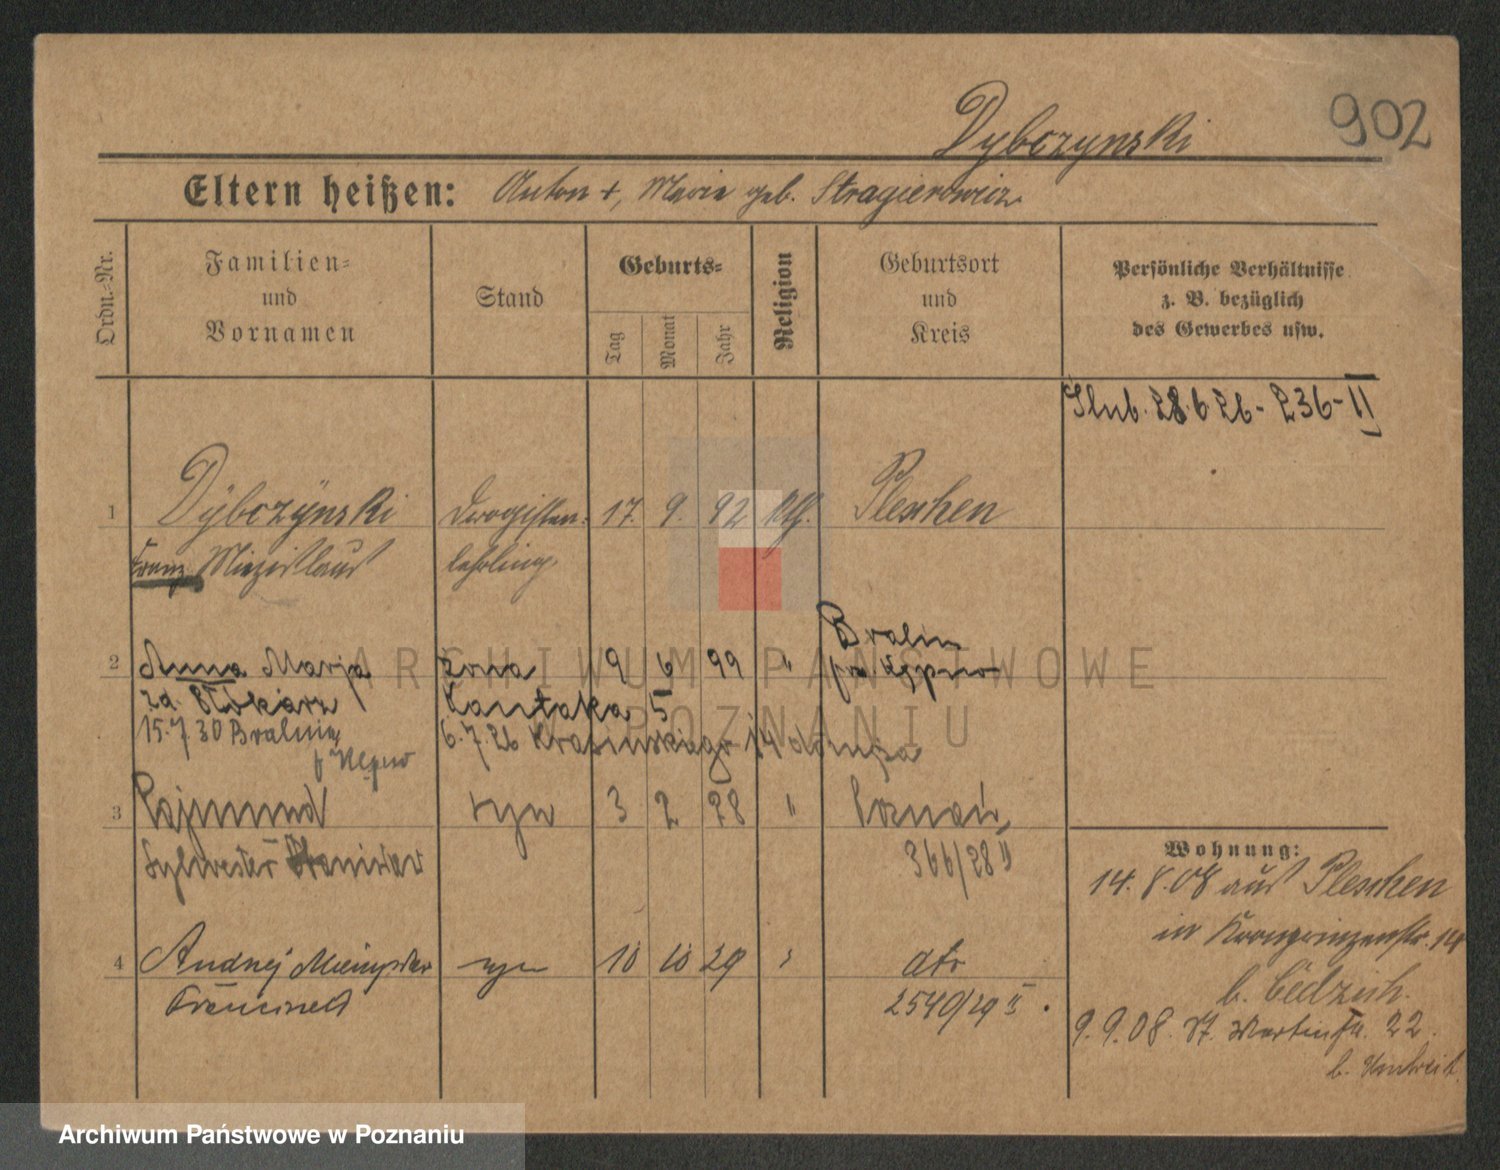 902
Dybczynski
Eltern heißen: Anton +, Marie geb. Stragierowicz
Ordn.-Nr.
Familien- und Vornamen
Stand
Geburts-
Tag
Monat
Jahr
Religion
Geburtsort und Kreis
Persönliche Verhältnisse z. B. bezüglich des Gewerbes usw.
Ślub. 28.6 26 - 236 - II
1 Dÿbczÿnski Drogisten- 17. 9. 92 kth. Pleschen
Franz Miezislaus lehrling
Bralin
2 Anna Marja żona 9 6 99 "
Kantaka 5
15.7.30 Bralin
6.7.26 Krasińskiego 14
Kępno
3 Rajmund syn 3 2 28 " Poznań,
Sylwester Stanisław 366/28 II
4 Andrzej syn 10 10 29 " dto
2540/29 II
Wohnung:
14. 8. 08 aus Pleschen
in Kronprinzenstr. 14
b.
9. 9. 08. St. Martinstr. 22.
b.
ARCHIWUM PAŃSTWOWE
W POZNANIU
Archiwum Państwowe w Poznaniu